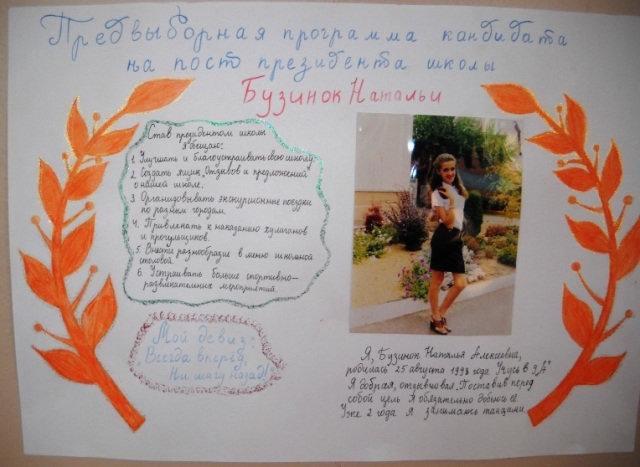 Предвыборная программа кандидата
на пост президента школы
Бузинок Натальи
Став президентом школы
я обещаю:
1. Улучшать и благоустраивать свою школу.
2. Создать ящик „Отзывов и предложений
о нашей школе.
3. Организовывать экскурсионные поездки
по разным городам.
4. Привлекать к наказанию хулиганов
и прогульщиков.
5. Внести разнообразие в меню школьной
столовой.
6. Устраивать больше спортивно-
развлекательные мероприятий.
Мой девиз:
„Всегда вперёд,
Ни шагу назад!"
Я, Бузинок Наталья Алексеевна,
родилась 25 августа 1998 года. Учусь в 9 „А"
Я добрая, отзывчивая. Поставив перед
собой цель я обязательно добьюсь её
Уже 2 года я занимаюсь танцами.